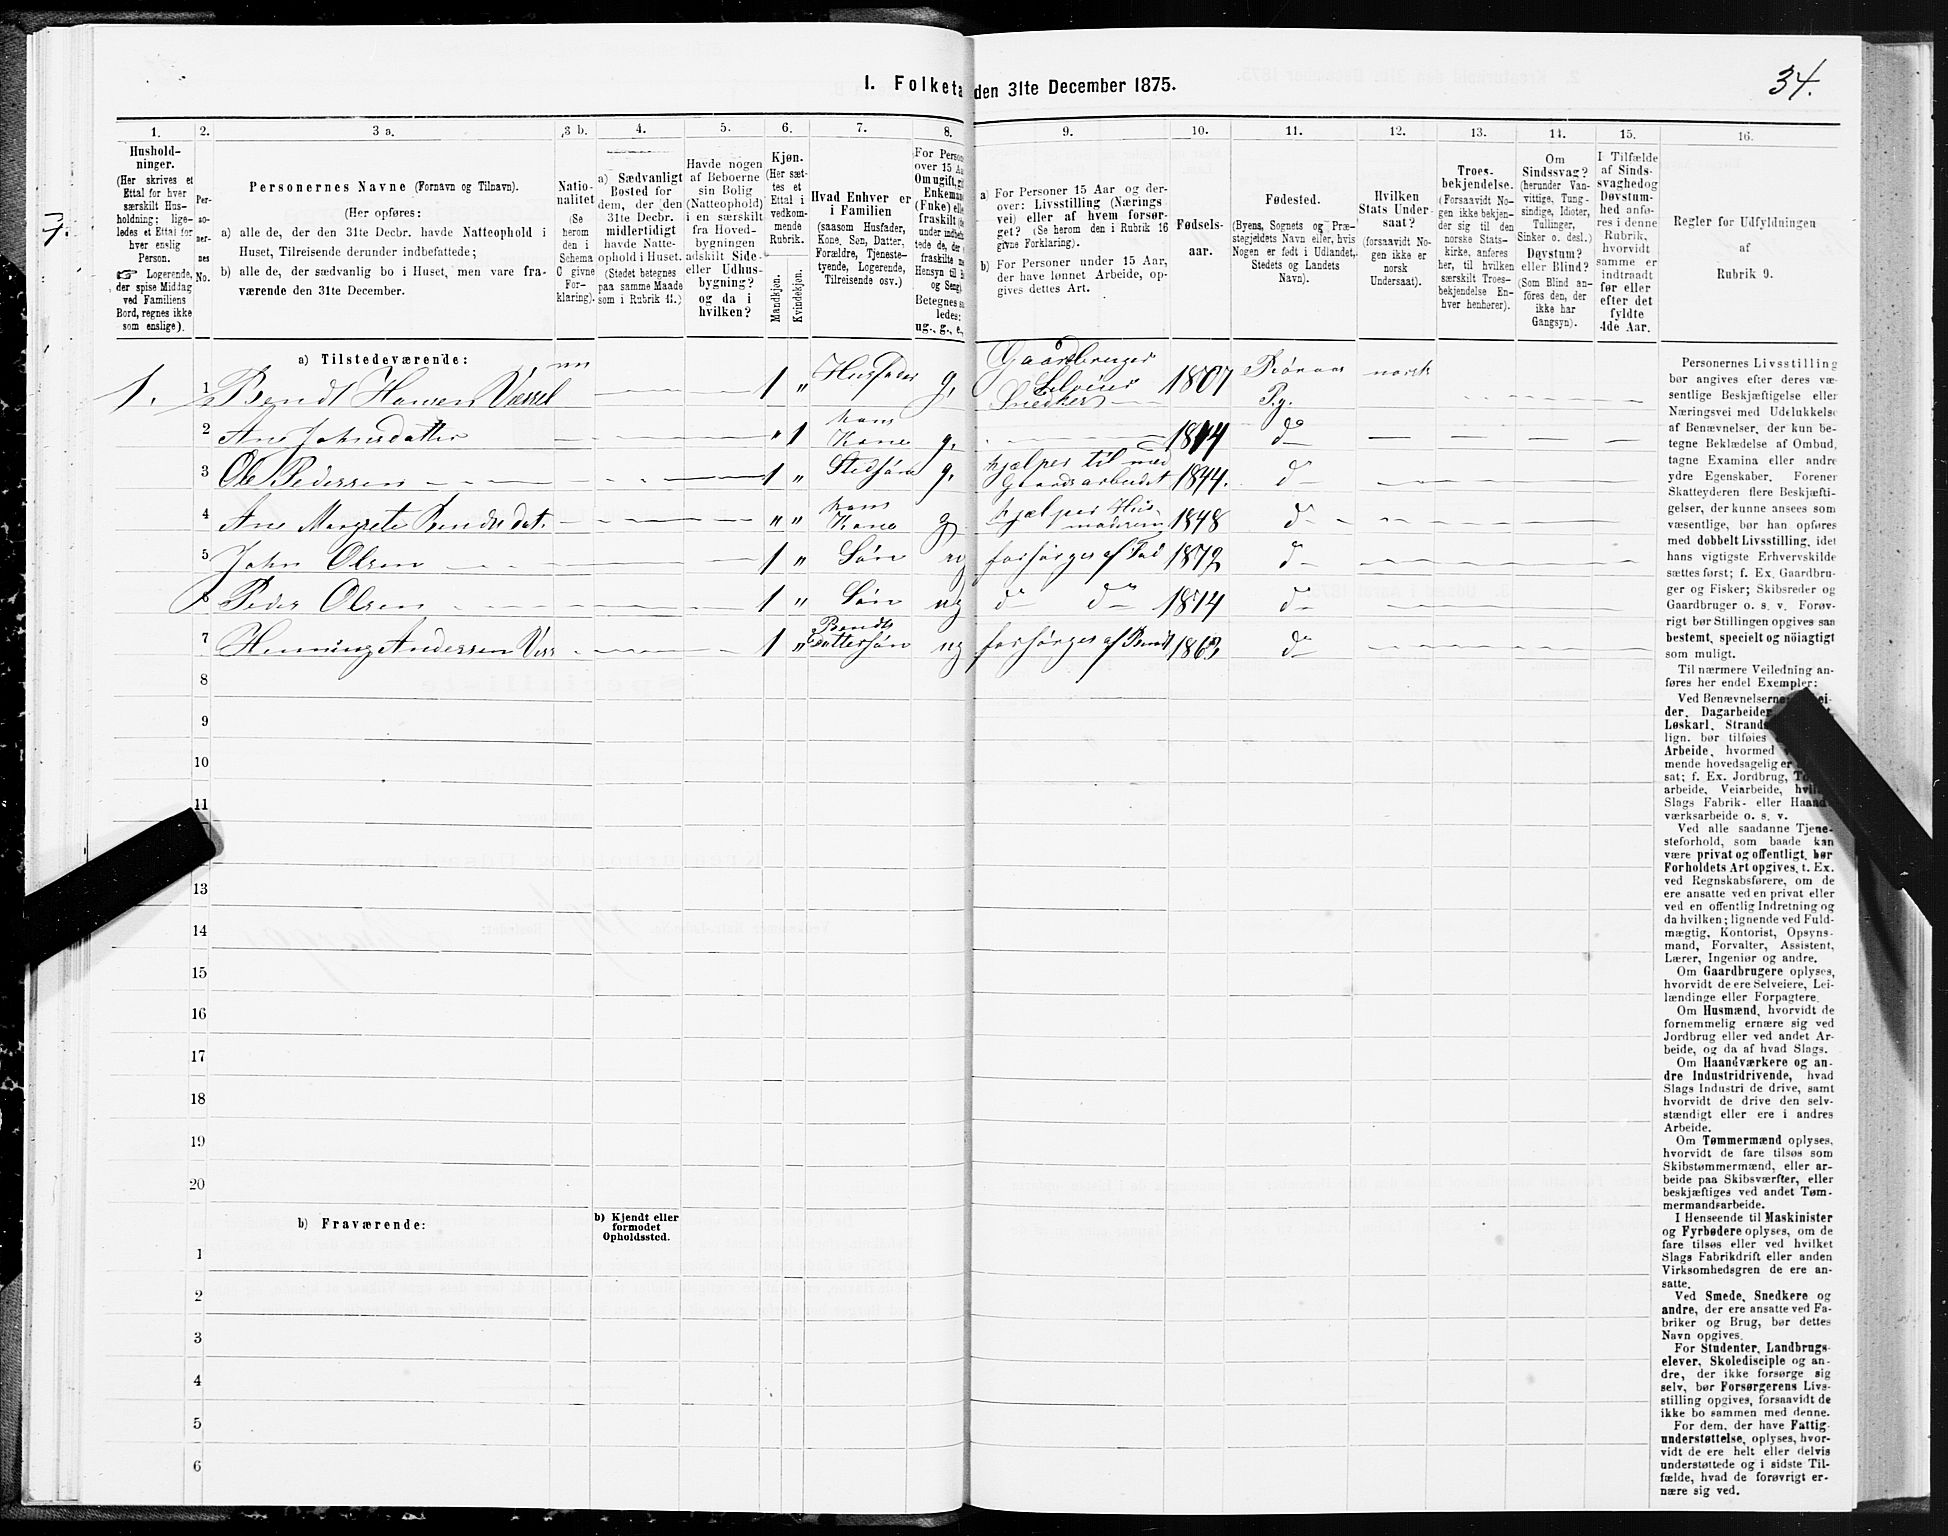 34.
I. Folketa den 31te December 1875.
1. 2. 3 a. 3 b. 4. 5. 6. 7. 8. 9. 10. 11. 12. 13. 14. 15. 16.
Hushold-
ninger.
(Her skrives et
Ettal for hver
særskilt Hus-
holdning; lige-
ledes et Ettal for
hver enslig
Person.
☞ Logerende,
der spise Middag
ved Familiens
Bord, regnes ikke
som enslige).
Per-
so-
ner-
nes
No.
Personernes Navne (Fornavn og Tilnavn).
(Her opføres:
a) alle de, der den 31te Decbr. havde Natteophold i
Huset, Tilreisende derunder indbefattede;
b) alle de, der sædvanlig bo i Huset, men vare fra-
værende den 31te December.
Natio-
nalitet
(Se
herom
den i
Schema
C givne
For-
klaring).
a) Sædvanligt
Bosted for
dem, der den
31te Decbr.
midlertidigt
havde Natte-
ophold i Huset.
(Stedet betegnes
paa samme Maade
som i Rubrik 11.)
Havde nogen
af Beboerne
sin Bolig
(Natteophold)
i en særskilt
fra Hoved-
bygningen
adskilt Side-
eller Udhus-
bygning?
og da i
hvilken?
Kjøn.
(Her sæt-
tes et
Ettal i
vedkom-
mende
Rubrik.
Mandkjøn.
Kvindekjøn.
Hvad Enhver er
i Familien
(saasom Husfader,
Kone, Søn, Datter,
Forældre, Tjeneste-
tyende, Logerende,
Tilreisende osv.)
For Perso
over 15 Aa
Om ugift, gi
Enkeman
(Fnke) elle
fraskilt (
under indbefa
tede de, der
fraskilte
Hensyn til B
og Seng).
Betegnes sa
ledes:
ug., g., e.,
a) For Personer 15 Aar og der-
over: Livsstilling (Nærings
vei) eller af hvem forsør-
get? (Se herom den i Rubrik 16
givne Forklaring).
b) For Personer under 15 Aar,
der have lønnet Arbeide, op-
gives dettes Art.
Fødsels-
aar.
Fødested.
(Byens, Sognets og Præ-
stegjeldets Navn eller, hvis
Nogen er født i Udlandet,
Stedets og Landets
Navn).
Hvilken
Stats Under-
saat?
(forsaavidt No-
gen ikke er
norsk
Undersaat).
Troes-
bekjendelse.
(Forsaavidt No-
gen ikke bekjen-
der sig til den
norske Stats-
kirke, anføres
her, til hvilken
særskilt Troes-
bekjendelse En-
hver henhører).
Om
Sindssvag?
(herunder Van-
vittige, Tung-
sindige, Idioter,
Tullinger,
Sinker o. desl.)
Døvstum?
eller Blind?
(Som Blind an-
føres den, der
ikke har
Gangsyn).
I Tilfælde
af Sinds-
svaghedog
Døvstum-
hed anfø-
res i denne
Rubrik,
hvorvidt
samme er
indtraadt
før eller
efter det
fyldte
4de Aar.
Regler for Udfyldningen
af
Rubrik 9.
a) Tilstedeværende:
1. 1 Bendt Hansen Vessel 1 „ Husfader g, Gaardbruger Selveier Snedker 1807 Røraas Pg. norsk
2 Ane Johnsdatter „ 1 hans Kone g, 1814 do
3 Ole Pedersen 1 „ Stedsøn g, hjælper til med Gaardsarbeidet 1844. do
4 Ane Margrete Bendtsdat. „ „ hans Kone g hjælper Husmoderen 1848 do
5 John Olsen 1 „ Søn ug forsørges af Fad 1872 do
6 Peder Olsen 1 „ Søn ug do do 1874 do
7 Henning Andersen Vess 1 „ Bendts Dattersøn ug forsørges af Bendt 1863 do
8
9
10
11
13
14
15
16
17
18
19
20
b) Fraværende:
b) Kjendt eller
formodet
Opholdssted.
1
2
3
4
5
6
Personernes Livsstilling
bør angives efter deres væ-
sentlige Beskjæftigelse eller
Næringsvei med Udelukkelse
af Benævnelser, der kun be-
tegne Beklædelse af Ombud,
tagne Examina eller andre
ydre Egenskaber. Forener
Skatteyderen flere Beskjæfti-
gelser, der kunne ansees som
væsentlige, bør han opføres
med dobbelt Livsstilling, idet
hans vigtigste Erhvervskilde
sættes først; f. Ex. Gaardbru-
ger og Fisker; Skibsreder og
Gaardbruger o. s. v. Forøv-
rigt bør Stillingen opgives saa
bestemt, specielt og nöiagtigt
som muligt.
Til nærmere Veiledning an-
føres her endel Exempler:
Ved Benævnelserne:
der, Dagarbeider
Løskarl, Strands
lign. bør tilføies
Arbeide, hvormed
mende hovedsagelig er
sat; f. Ex. Jordbrug, To
arbeide, Veiarbeide, hvil
Slags Fabrik- eller Haand-
værksarbeide o. s. v.
Ved alle saadanne Tjene-
steforhold, som baade kan
være privat og offentligt, bør
Forholdets Art opgives, t. Ex.
ved Regnskabsførere, om de
ere ansatte ved en privat eller
ved en offentlig Indretning og
da hvilken; lignende ved Fuld-
mægtig, Kontorist, Opsyns-
mand, Forvalter, Assistent,
Lærer, Ingeniør og andre.
Om Gaardbrugere oplyses,
hvorvidt de ere Selveiere, Lei-
lændinge eller Forpagtere.
Om Husmænd, hvorvidt de
fornemmelig ernære sig ved
Jordbrug eller ved andet Ar-
beide, og da af hvad Slags.
Om Haandværkere og an-
dre Industridrivende, hvad
Slags Industri de drive, samt
hvorvidt de drive den selv-
stændigt eller ere i andres
Arbeide.
Om Tømmermænd oplyses,
hvorvidt de fare tilsøs som
Skibstømmermænd, eller ar-
beide paa Skibsværfter, eller
beskjæftiges ved andet Tøm-
mermandsarbeide.
I Henseende til Maskinister
og Fyrbødere oplyses, om de
fare tilsøs eller ved hvilket
Slags Fabrikdrift eller anden
Virksomhedsgren de ere an-
satte.
Ved Smede, Snedkere og
andre, der ere ansatte ved Fa-
briker og Brug, bør dettes
Navn opgives.
For Studenter, Landbrugs-
elever, Skoledisciple og an-
dre, der ikke forsørge sig
selv, bør Forsørgerens Livs-
stilling opgives, forsaavidt de
ikke bo sammen med denne.
For dem, der have Fattig-
understøttelse, oplyses, hvor-
vidt de ere helt eller delvis
understøttede og i sidste Til-
fælde, hvad de forøvrigt er-
nære sig ved.